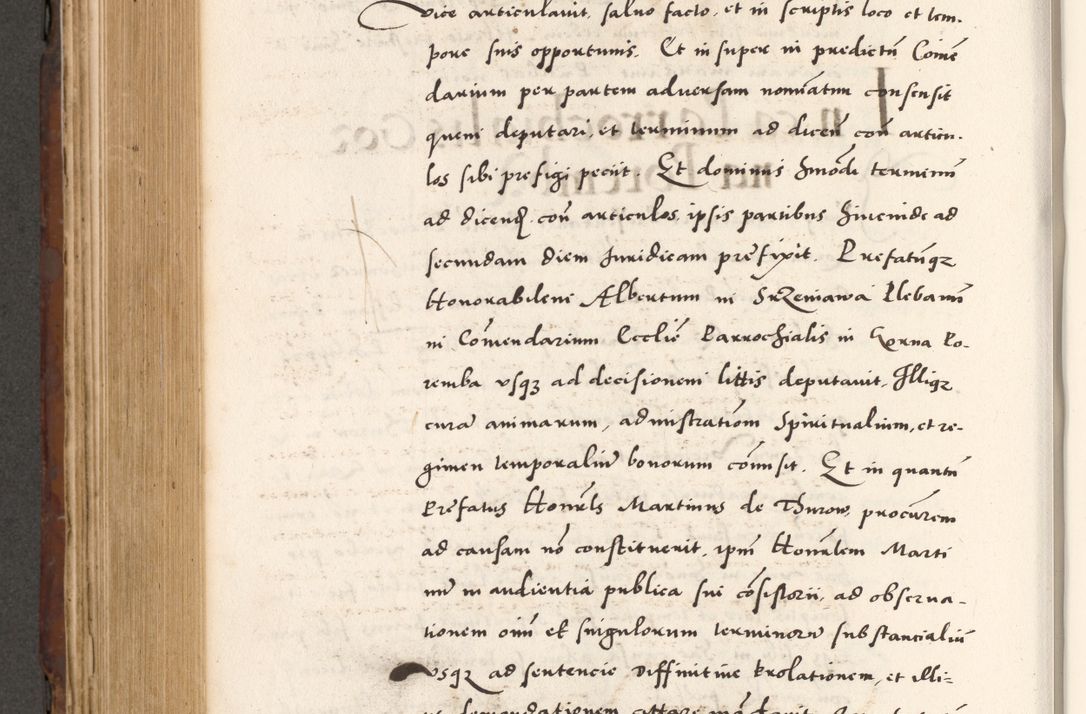 vice articulavit, salvo facto, et in scriptis loco et tem-
pore suis opportunis. Et in super in predictū Comē
darium per partem adversam nominatum consensit
quem deputari, et terminum ad dicen̄ con̄ articu-
los sibi prefigi peciit. Et dominus hmōdi terminū
ad dicend con̄ articulos, ipsis partibus hincinde ad
secundam diem Juridicam prefixit. Prefatūqz
Honorabilem Albertum in Srzeniawa Plebanū
in Comendarium Ecclīe Parrochialis in Gorna Po-
remba usqz ad decisionem littis deputavit, Illiqz
curā animarum, administrationē Spiritualium, et re-
gimen temporaliū bonorum comisit. Et in quantū
Prefatus Honrls Martinus de Thurow, procurem
ad causam nō constituerit, ipm Honrlem Marti
nū in audientia publica sui cōsistorii, ad observa-
tionem oīm et singulorum terminorū substancialiū
usqz ad sentencie Diffinitive Prolationem, et illi-